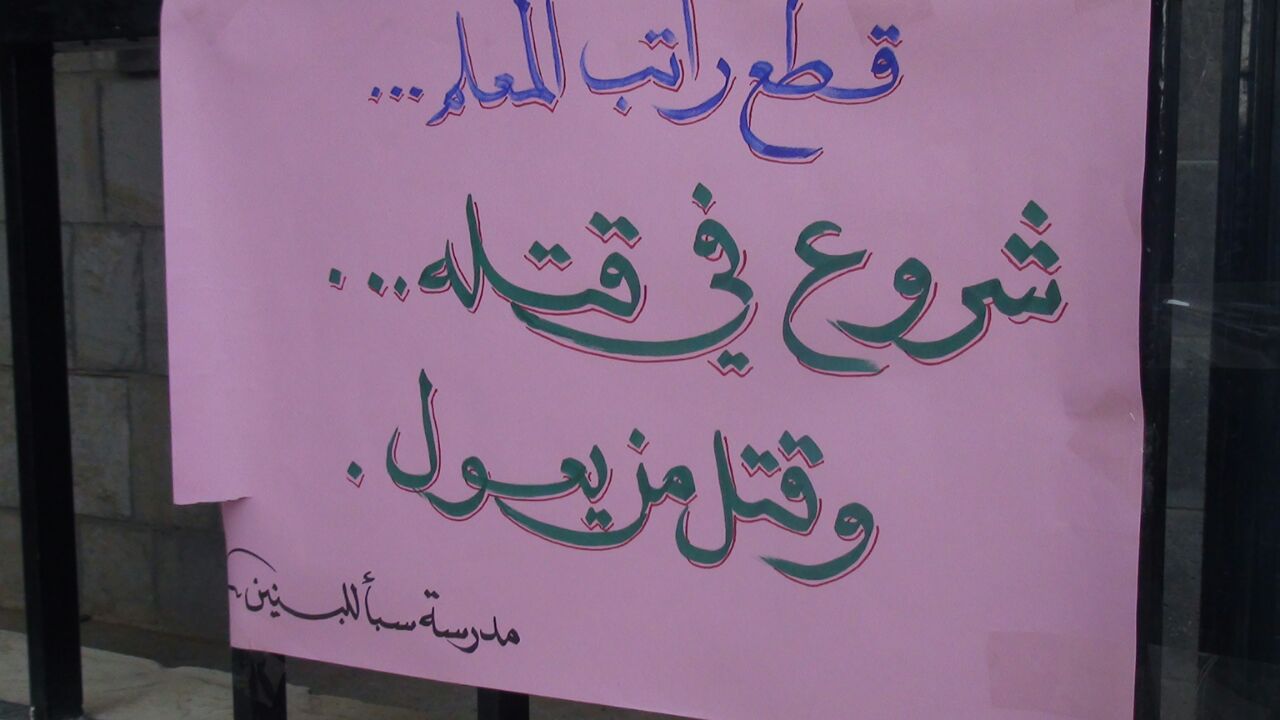 قطع راتب المعلم ...
شروع في قتله ...
وقتل من يعول .
مدرسة سبأ للبنين